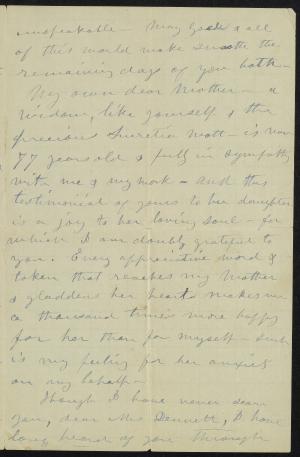 unspeakable - May God & all
of this world make smooth the
remaining days of you both -
My own dear Mother - a
widow, like yourself & the
precious Lucretia Mott - is now
77 years old & fully in sympathy
with me & my work - and this
testimonial of yours to her daughter
is a joy to her loving soul - for
which I am doubly grateful to
you. Every appreciative word &
token that reaches my Mother
& gladdens her heart makes me
a thousand times more happy
for her than for myself - such
is my feeling for her anxiety
on my behalf -
Though I have never seen
you, dear Mrs Dennett, I have
long heard of you through